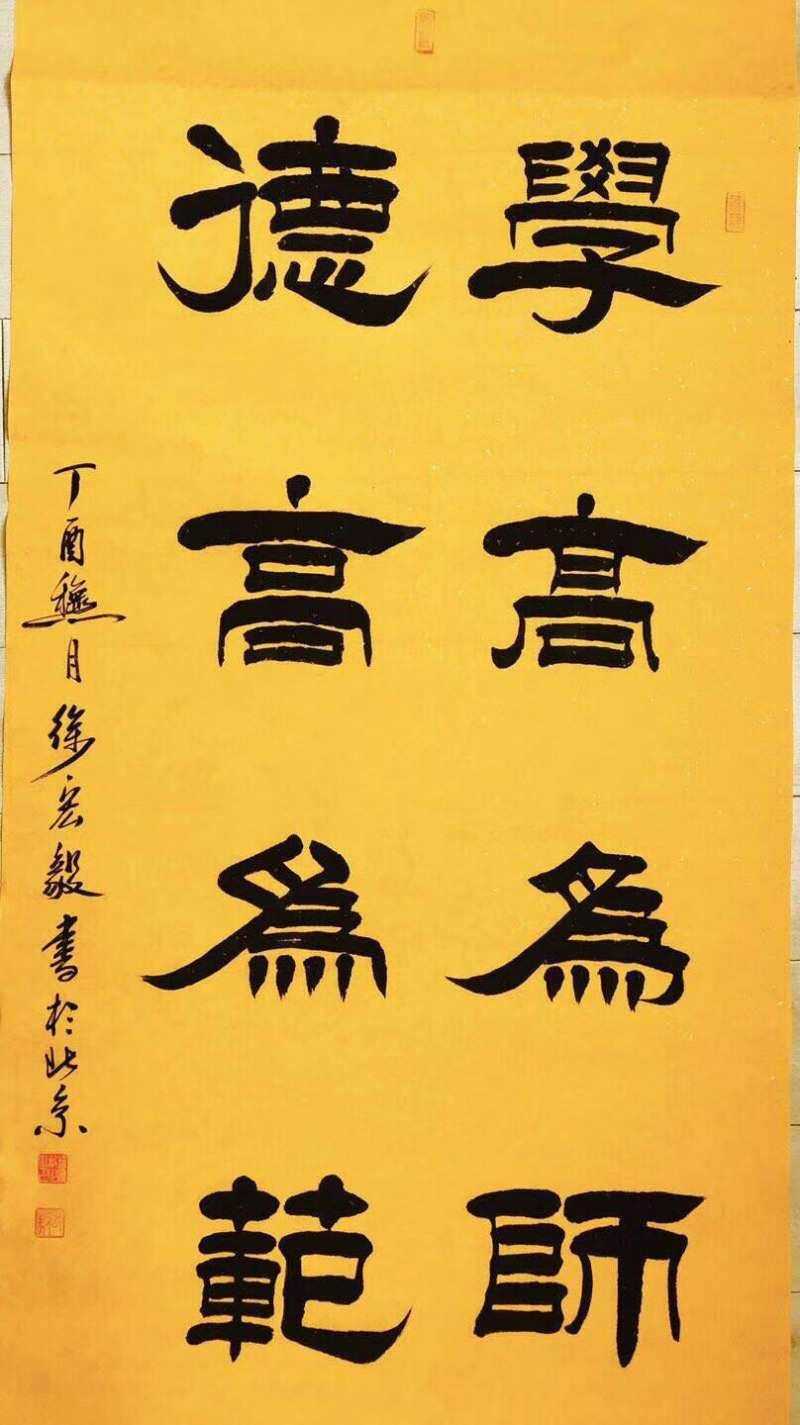 學高為師
德高為範
丁酉穐月徐宏毅書於北京